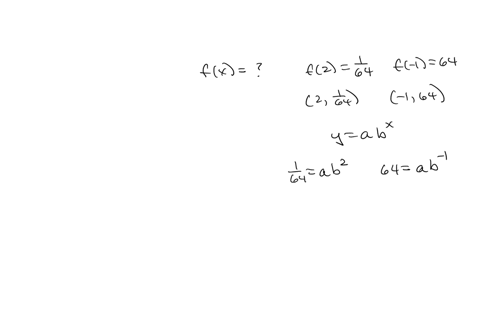 f(x) = ? f(2) = 1/64 f(-1) = 64
(2, 1/64) (-1, 64)
y = ab^x
1/64 = ab^2 64 = ab^-1